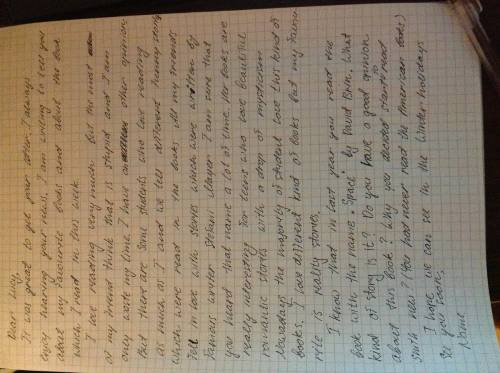 Dear Lucy,
It was great to get your letter. I always
enjoy hearing your news. I am writing to tell you
about my favourite books and about the book
which I read in this week.
I love reading very much. But the most
of my friend think that is stupid and I am
only waste my time. I have other opinion
But there are some students who love reading
as much as I and we tell different funny story
which were read in the books. All my friends
fall in love with stories which were written by
famous writer Stefani Mayer. I am sure that
you heard that name a lot of time. Her books are
really interesting for teens who love beautiful
romantic storys with a drop of mysticism.
Nowadays the majority of student love this kind of
books. I love different kind of books but my favou-
rite is really stories.
I know that in last year you read the
book with the name "Space" by David Brin. What
kind of story is it? Do you have a good opinion
about this book? Why you decided to start read
smth new? (You had never read the American books)
I hope we can see in the Winter holidays
See you later,
Name